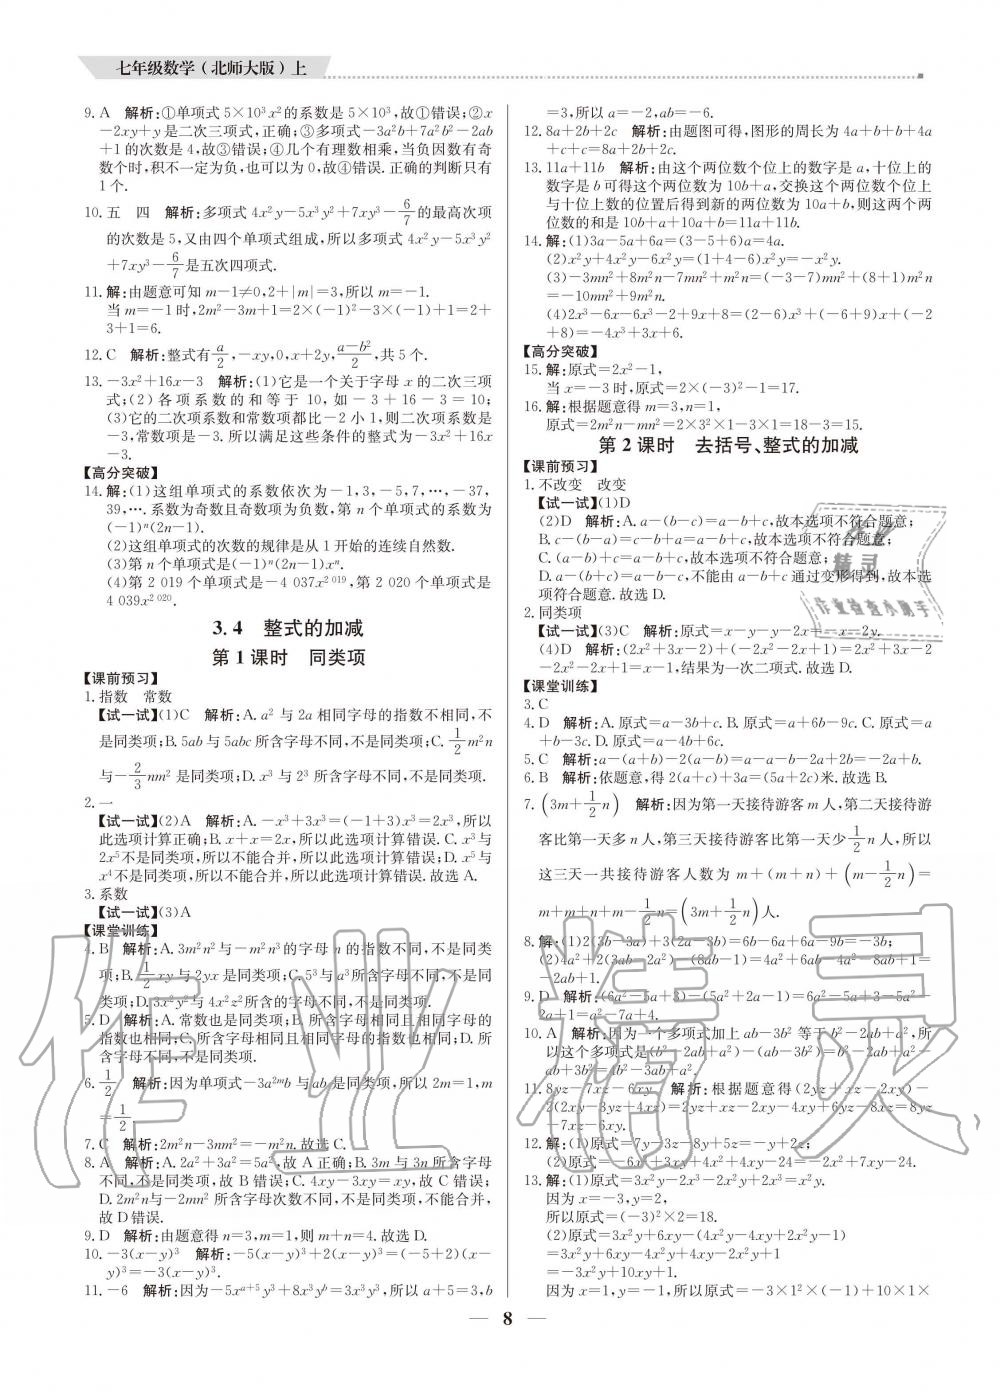 七年级数学(北师大版)上
9. A 解析:①单项式 5×10³x²的系数是 5×10³,故①错误;②x
－2xy＋y 是二次三项式,正确;③多项式－3a²b＋7a²b²－2ab
＋1 的次数是 4,故③错误;④几个有理数相乘,当负因数有奇
数个时,积不一定为负,也可以为 0,故④错误.正确的判断只有
1 个.
10. 五 四 解析:多项式 4x²y－5x³y²＋7xy³－6/7 的最高次项
的次数是 5,又由四个单项式组成,所以多项式 4x²y－5x³y²
＋7xy³－6/7 是五次四项式.
11. 解:由题意可知 m－1≠0,2＋|m|＝3,所以 m＝－1.
当 m＝－1 时,2m²－3m＋1＝2×(－1)²－3×(－1)＋1＝2＋
3＋1＝6.
12. C 解析:整式有 a/2,－xy,0,x＋2y,(a－b²)/2,共 5 个.
13. －3x²＋16x－3 解析:(1)它是一个关于字母 x 的二次三项
式;(2)各项系数的和等于 10,如－3＋16－3＝10;
(3)它的二次项系数和常数项都比－2 小 1,则二次项系数是
－3,常数项是－3.所以满足这些条件的整式为－3x²＋16x
－3.
【高分突破】
14. 解:(1)这组单项式的系数依次为－1,3,－5,7,…,－37,
39,….系数为奇数且奇数项为负数,第 n 个单项式的系数为
(－1)ⁿ(2n－1).
(2)这组单项式的次数的规律是从 1 开始的连续自然数.
(3)第 n 个单项式是(－1)ⁿ(2n－1)xⁿ.
(4)第 2 019 个单项式是－4 037x²⁰¹⁹,第 2 020 个单项式是
4 039x²⁰²⁰.
3.4 整式的加减
第 1 课时 同类项
【课前预习】
1. 指数 常数
【试一试】(1)C 解析:A. a²与 2a 相同字母的指数不相同,不
是同类项;B. 5ab 与 5abc 所含字母不同,不是同类项;C. 1/2m²n
与－2/3nm²是同类项;D. x³与 2³所含字母不同,不是同类项.
2. 一
【试一试】(2)A 解析:A.－x³＋3x³＝(－1＋3)x³＝2x³,所以
此选项计算正确;B. x＋x＝2x,所以此选项计算错误.C. x³与
2x⁵不是同类项,所以不能合并,所以此选项计算错误;D. x⁵与
x⁴不是同类项,所以不能合并,所以此选项计算错误.故选 A.
3. 系数
【试一试】(3)A
【课堂训练】
4. B 解析:A. 3m²n²与－m²n³的字母 n 的指数不同,不是同类
项;B. 1/2xy 与 2yx 是同类项;C. 5³与 a³所含字母不同,不是同
类项;D. 3x²y²与 4x²z²所含的字母不同,不是同类项.
5. D 解析:A. 常数也是同类项;B. 所含字母相同且相同字母的
指数也相同;C. 所含字母相同且相同字母的指数也相同;D. 所
含字母不同,不是同类项.
6. 1/2 解析:因为单项式－3a²ᵐb 与 ab 是同类项,所以 2m＝1,m
＝1/2.
7. C 解析:2m²n－3nm²＝－m²n.故选 C.
8. A 解析:A. 2a²＋3a²＝5a²,故 A 正确;B. 3m 与 3n 所含字母
不同,不是同类项,故 B 错误;C. 4xy－3xy＝xy,故 C 错误;
D. 2m²n 与－2mn²所含字母次数不同,不是同类项,不能合并,
故 D 错误.
9. D 解析:由题意得 n＝3,m＝1,则 m＋n＝4.故选 D.
10. －3(x－y)³ 解析:－5(x－y)³＋2(x－y)³＝(－5＋2)(x－
y)³＝－3(x－y)³.
11. －6 解析:因为－5xᵃ⁺⁵y³＋8x³yᵇ＝3x³y³,所以 a＋5＝3,b
＝3,所以 a＝－2,ab＝－6.
12. 8a＋2b＋2c 解析:由题图可得,图形的周长为 4a＋b＋b＋4a
＋c＋c＝8a＋2b＋2c.
13. 11a＋11b 解析:由这个两位数个位上的数字是 a,十位上的
数字是 b 可得这个两位数为 10b＋a,交换这个两位数个位上
与十位上数的位置后得到新的两位数为 10a＋b,则这两个两
位数的和是 10b＋a＋10a＋b＝11a＋11b.
14. 解:(1)3a－5a＋6a＝(3－5＋6)a＝4a.
(2)x²y＋4x²y－6x²y＝(1＋4－6)x²y＝－x²y.
(3)－3mn²＋8m²n－7mn²＋m²n＝(－3－7)mn²＋(8＋1)m²n
＝－10mn²＋9m²n.
(4)2x³－6x－6x³－2＋9x＋8＝(2－6)x³＋(－6＋9)x＋(－2
＋8)＝－4x³＋3x＋6.
【高分突破】
15. 解:原式＝2x²－1,
当 x＝－3 时,原式＝2×(－3)²－1＝17.
16. 解:根据题意得 m＝3,n＝1,
原式＝2m²n－mn²＝2×3²×1－3×1＝18－3＝15.
第 2 课时 去括号、整式的加减
【课前预习】
1. 不改变 改变
【试一试】(1)D
(2)D 解析:A. a－(b－c)＝a－b＋c,故本选项不符合题意;
B. c－(b－a)＝c－b＋a＝a－b＋c,故本选项不符合题意;
C. (a－b)＋c＝a－b＋c,故本选项不符合题意;
D. a－(b＋c)＝a－b－c,不能由 a－b＋c 通过变形得到,故本选
项符合题意.故选 D.
2. 同类项
【试一试】(3)C 解析:原式＝x－y－y－2x＋＝－x－2y.
(4)D 解析:(2x²＋3x－2)＋(－2x²－2x＋1)＝2x²＋3x－2
－2x²－2x＋1＝x－1,结果为一次二项式.故选 D.
【课堂训练】
3. C
4. D 解析:A. 原式＝a－3b＋c. B. 原式＝a＋6b－9c. C. 原式＝a
＋b－3c. D. 原式＝a－4b＋6c.
5. C 解析:a－(a＋b)－2(a－b)＝a－a－b－2a＋2b＝－2a＋b.
6. B 解析:依题意,得 2(a＋c)＋3a＝(5a＋2c)米.故选 B.
7. (3m＋1/2n) 解析:因为第一天接待游客 m 人,第二天接待游
客比第一天多 n 人,第三天接待游客比第一天少 1/2n 人,所以
这三天一共接待游客人数为 m＋(m＋n)＋(m－1/2n)＝
m＋m＋n＋m－1/2n＝(3m＋1/2n)人.
8. 解:(1)2(3b－3a)＋3(2a－3b)＝6b－6a＋6a－9b＝－3b;
(2)4a²＋2(3ab－2a²)－(8ab－1)＝4a²＋6ab－4a²－8ab＋1＝
－2ab＋1.
9. D 解析:(6a²－5a＋3)－(5a²＋2a－1)＝6a²－5a＋3－5a²－
2a＋1＝a²－7a＋4.
10. A 解析:因为一个多项式加上 ab－3b²等于 b²－2ab＋a²,所
以这个多项式是(b²－2ab＋a²)－(ab－3b²)＝b²－2ab＋a²－
ab＋3b²＝4b²－3ab＋a².
11. 8yz－7xz－6xy 解析:根据题意得(2yz＋xz－2xy)－
2(2xy－3yz＋4xz)＝2yz＋xz－2xy－4xy＋6yz－8xz＝8yz
－7xz－6xy.
12. 解:(1)原式＝7y－3z－8y＋5z＝－y＋2z;
(2)原式＝－6x²＋3xy＋4x²＋4xy－24＝－2x²＋7xy－24.
13. 解:(1)原式＝3x²y－2x³－2x²y＋2x³＝x²y.
因为 x＝－3,y＝2,
所以原式＝(－3)²×2＝18.
(2)原式＝3x²y＋6xy－(4x²y－4xy＋2x²y－1)
＝3x²y＋6xy－4x²y＋4xy－2x²y＋1
＝－3x²y＋10xy＋1.
因为 x＝1,y＝－1,所以原式＝－3×1²×(－1)＋10×1×
作业精灵
精灵
作业检查小助手
8